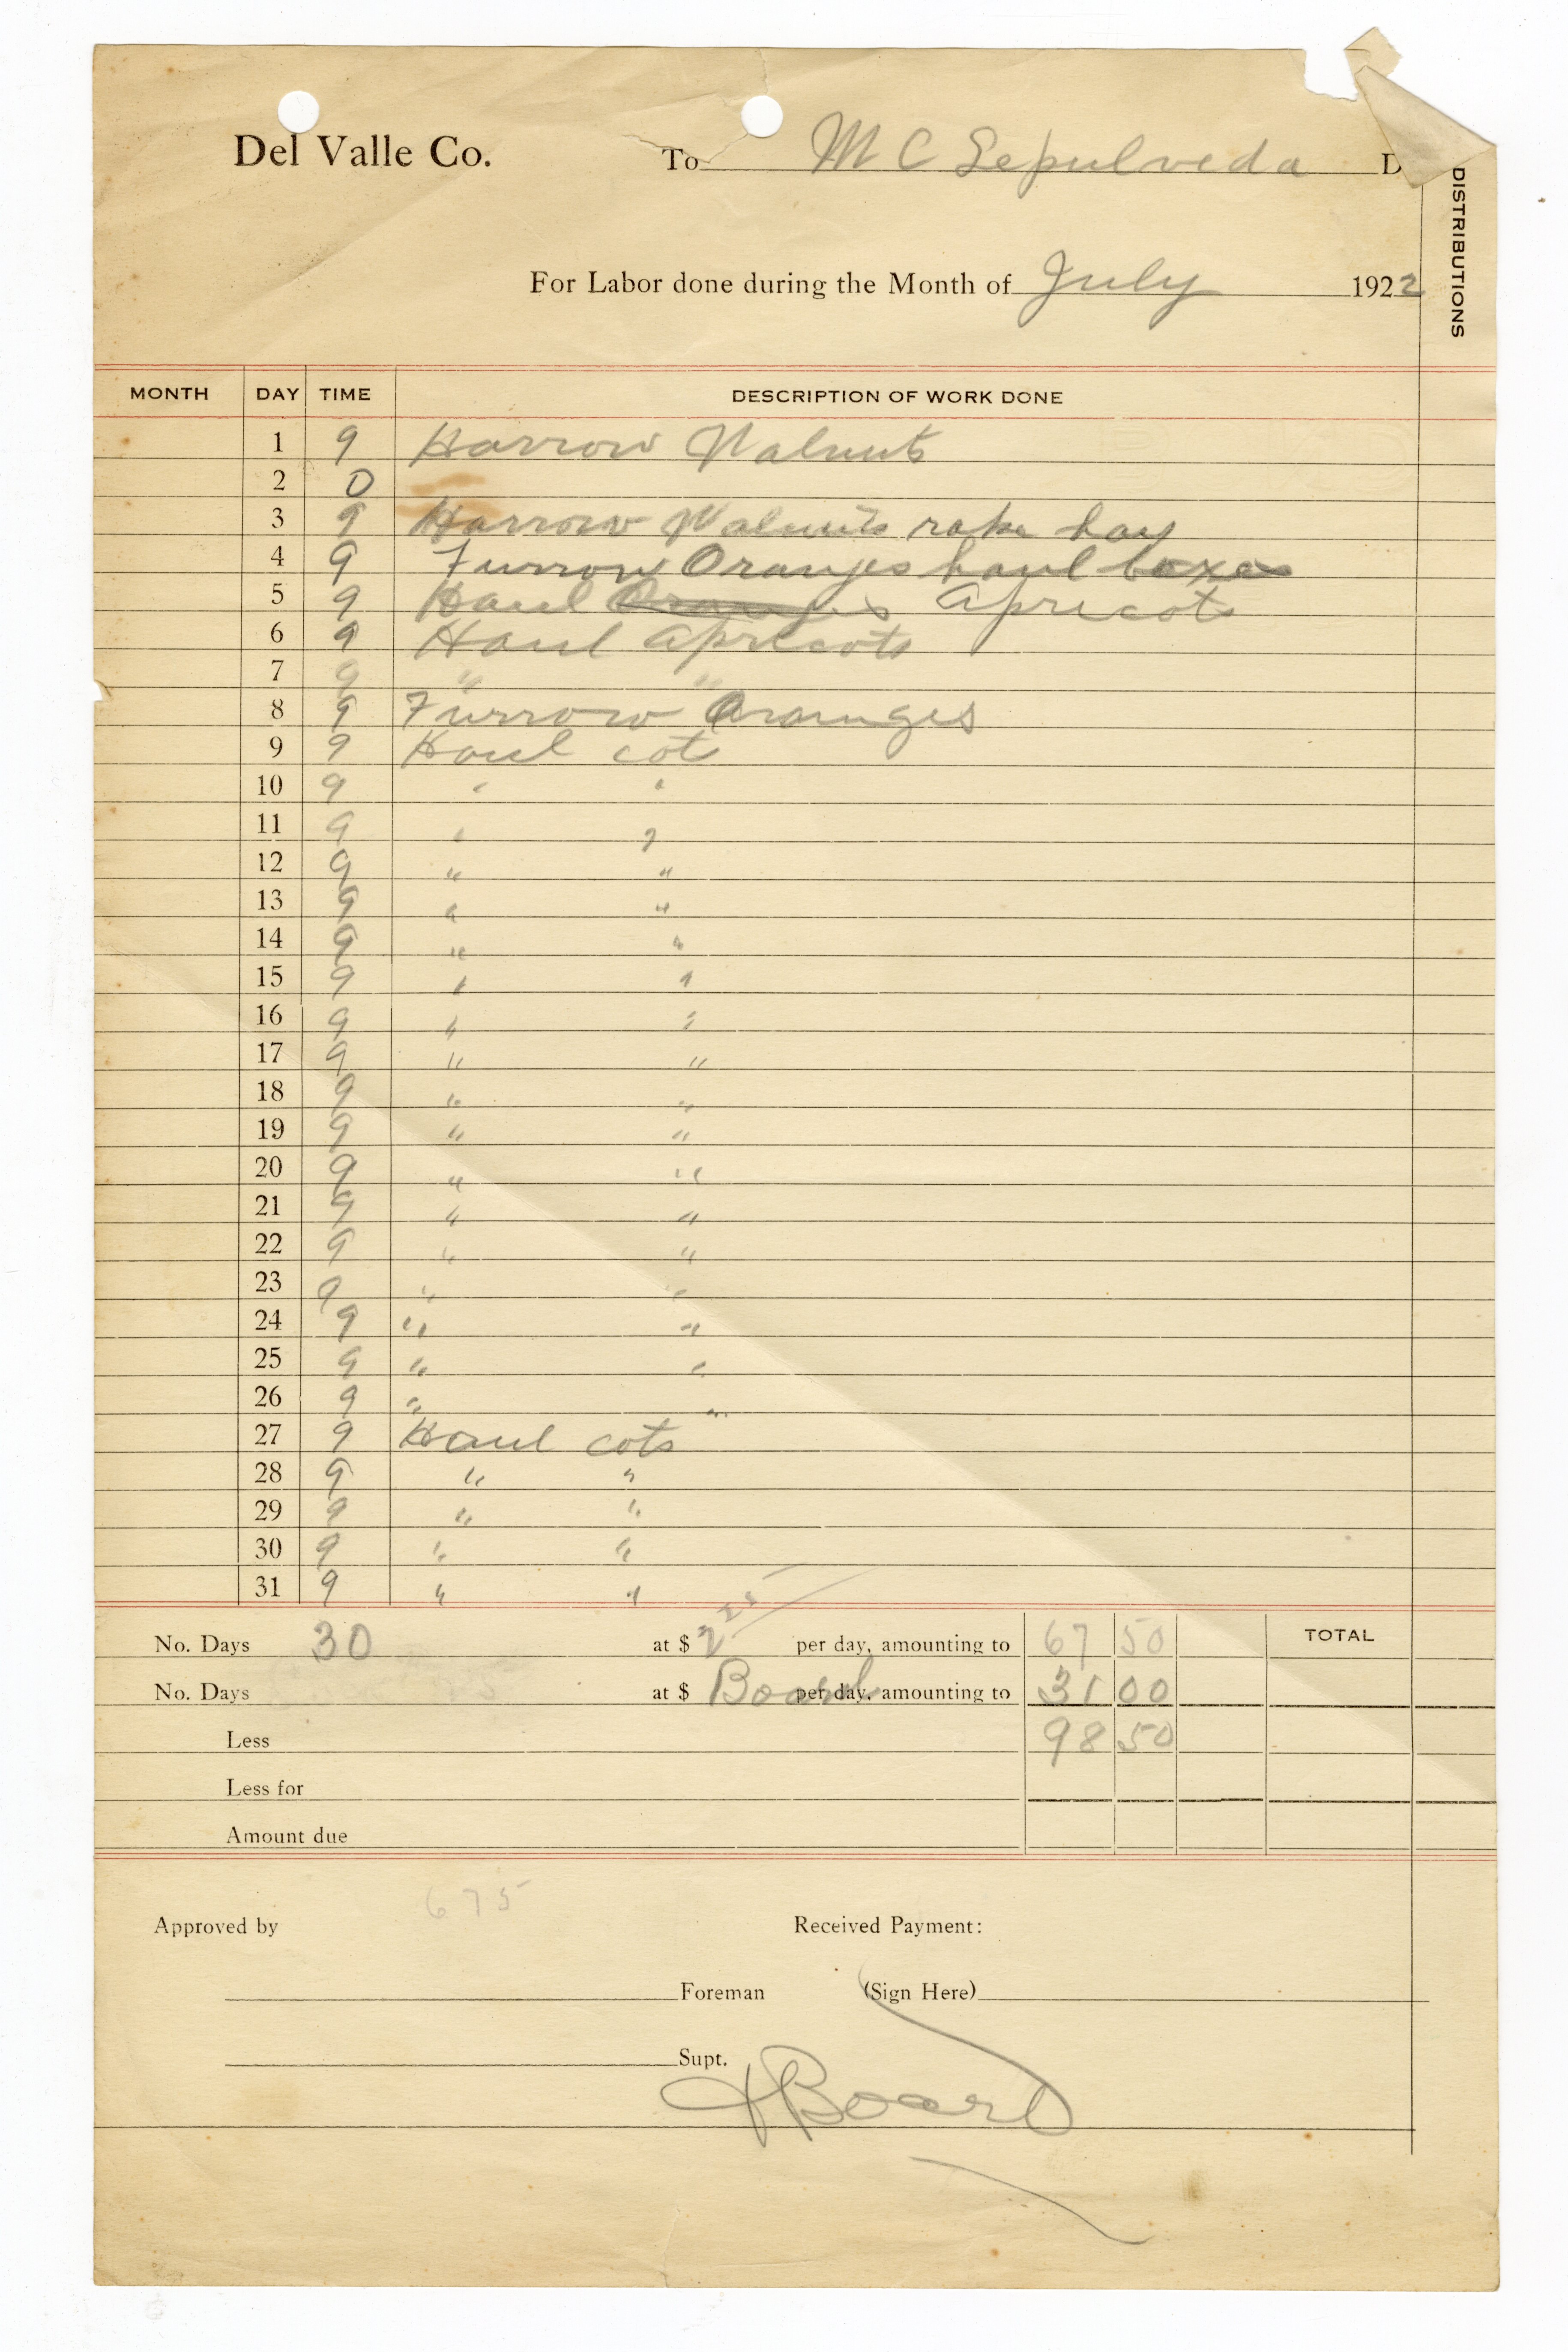 Del Valle Co. To M C Sepulveda D
DISTRIBUTIONS
For Labor done during the Month of July 1922
MONTH DAY TIME DESCRIPTION OF WORK DONE
1 9 Harrow Walnuts
2 0
3 9 Harrow Walnuts rake hay
4 9 Furrow Oranges haul boxes
5 9 Haul Oranges Apricots
6 9 Haul apricots
7 9 " "
8 9 Furrow Oranges
9 9 Haul cots
10 9 " "
11 9 " "
12 9 " "
13 9 " "
14 9 " "
15 9 " "
16 9 " "
17 9 " "
18 9 " "
19 9 " "
20 9 " "
21 9 " "
22 9 " "
23 9 " "
24 9 " "
25 9 " "
26 9 " "
27 9 Haul cots
28 9 " "
29 9 " "
30 9 " "
31 9 " "
No. Days 30 at $ 2 25 per day, amounting to 67 50 TOTAL
No. Days at $ Board per day, amounting to 31 00
Less 98 50
Less for
Amount due
675
Approved by Received Payment:
Foreman (Sign Here)
Supt.
Board